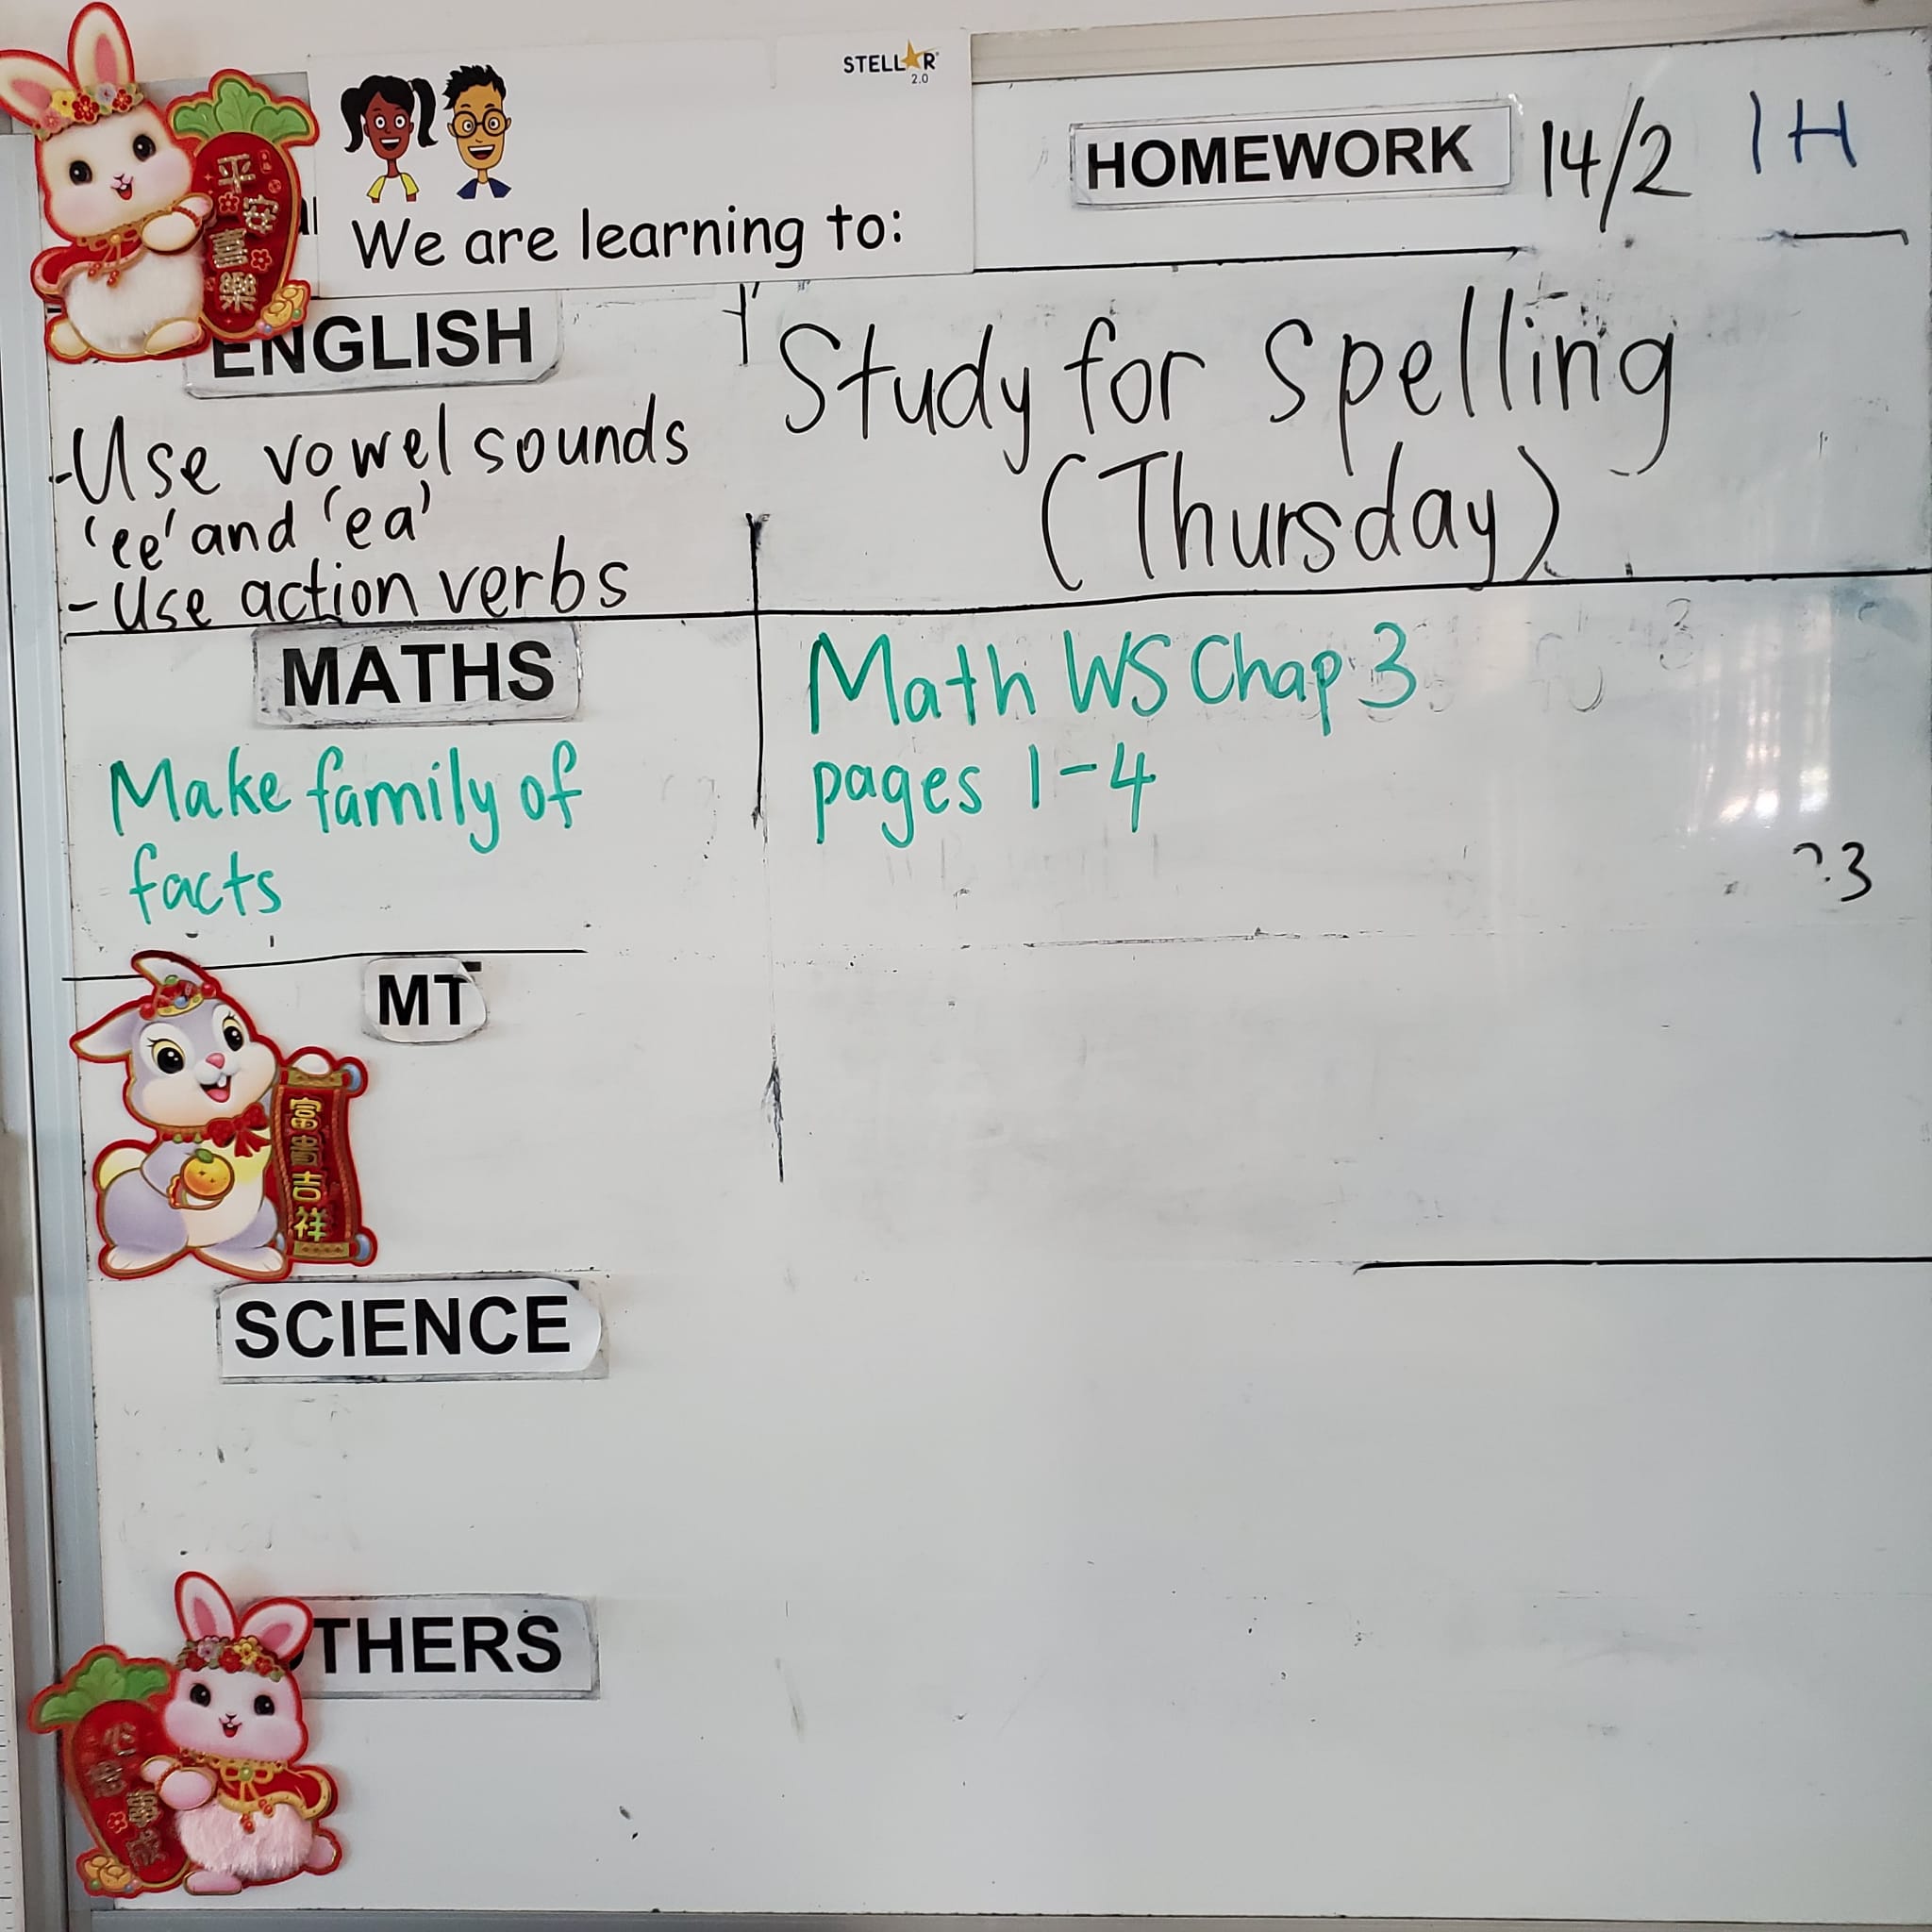 STELLAR
2.0
We are learning to:
HOMEWORK 14/2 1H
平安喜樂
ENGLISH
-Use vowel sounds
'ee' and 'ea'
-Use action verbs
Study for Spelling
(Thursday)
MATHS
Make family of
facts
Math WS Chap 3
pages 1-4
3
MT
富貴吉祥
SCIENCE
THERS
心想事成